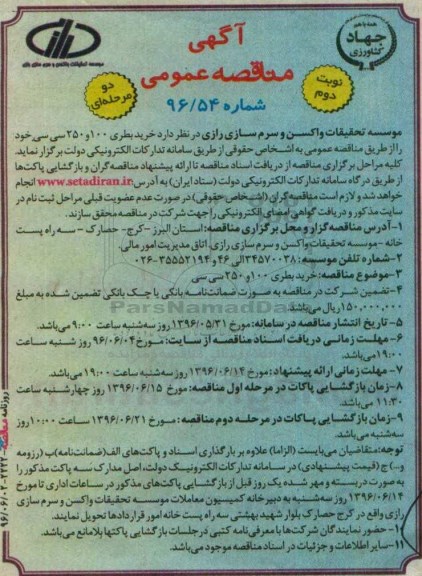 همه با هم
جهاد
کشاورزی
آگهی
مناقصه عمومی
شماره ۹۶/۵۴
نوبت
دوم
دو
مرحله‌ای
موسسه تحقیقات واکسن و سرم سازی رازی
موسسه تحقیقات واکسن و سرم سازی رازی در نظر دارد خرید بطری ۱۰۰ و ۲۵۰ سی سی خود
را از طریق مناقصه عمومی به اشخاص حقوقی از طریق سامانه تدارکات الکترونیکی دولت برگزار نماید.
کلیه مراحل برگزاری مناقصه از دریافت اسناد مناقصه تا ارائه پیشنهاد مناقصه‌گران و بازگشایی پاکت‌ها
از طریق درگاه سامانه تدارکات الکترونیکی دولت (ستاد ایران) به آدرس www.setadiran.ir انجام
خواهد شد و لازم است مناقصه‌گران (اشخاص حقوقی) در صورت عدم عضویت قبلی مراحل ثبت نام در
سایت مذکور و دریافت گواهی امضای الکترونیکی را جهت شرکت در مناقصه محقق سازند.
۱-آدرس مناقصه‌گزار و محل برگزاری مناقصه: استان البرز -کرج- حصارک - سه راه پست
خانه -موسسه تحقیقات واکسن و سرم سازی رازی، اتاق مدیریت امور مالی.
۲-شماره تلفن موسسه: ۳۴۵۷۰۰۳۸الی ۴۶ و ۳۵۵۵۲۱۹۴-۰۲۶
۳-موضوع مناقصه: خرید بطری ۱۰۰ و ۲۵۰ سی سی
۴-تضمین شرکت در مناقصه به صورت ضمانت‌نامه بانکی یا چک بانکی تضمین شده به مبلغ
۱۵۰,۰۰۰,۰۰۰ ریال می‌باشد.
۵- تاریخ انتشار مناقصه در سامانه: مورخ ۱۳۹۶/۰۵/۳۱ روز سه‌شنبه ساعت ۹:۰۰ می‌باشد.
۶- مهلت زمانی دریافت اسناد مناقصه از سایت: مورخ ۹۶/۰۶/۰۴ روز شنبه ساعت
۱۹:۰۰ می‌باشد.
۷- مهلت زمانی ارائه پیشنهاد: مورخ ۱۳۹۶/۰۶/۱۴ روز سه‌شنبه ساعت ۱۹:۰۰ می‌باشد.
۸-زمان بازگشایی پاکات در مرحله اول مناقصه: مورخ ۱۳۹۶/۰۶/۱۵ روز چهارشنبه ساعت
۱۱:۳۰ می باشد.
۹-زمان بازگشایی پاکات در مرحله دوم مناقصه : مورخ ۱۳۹۶/۰۶/۲۱ ساعت ۱۰:۰۰ روز
سه‌شنبه می‌باشد.
توجه: متقاضیان می‌بایست (الزاما) علاوه بر بارگذاری اسناد و پاکت‌های الف(ضمانت‌نامه)ب (رزومه
و...) ج (قیمت پیشنهادی) در سامانه تدارکات الکترونیک دولت، اصل مدارک سه پاکت مذکور را
به صورت دربسته و مهر شده یک روز قبل از بازگشایی پاکت‌های مذکور در ساعات اداری تا مورخ
۱۳۹۶/۰۶/۱۴ روز سه‌شنبه به دبیرخانه کمیسیون معاملات موسسه تحقیقات واکسن و سرم سازی
رازی واقع در کرج حصارک بلوار شهید بهشتی سه راه پست خانه امور قراردادها تحویل نمایند.
۱۰-حضور نمایندگان شرکت‌ها با معرفی‌نامه کتبی در جلسات بازگشایی پاکتها بلامانع می‌باشد.
۱۱-سایر اطلاعات و جزئیات در اسناد مناقصه موجود می‌باشد.
ParsNamadData